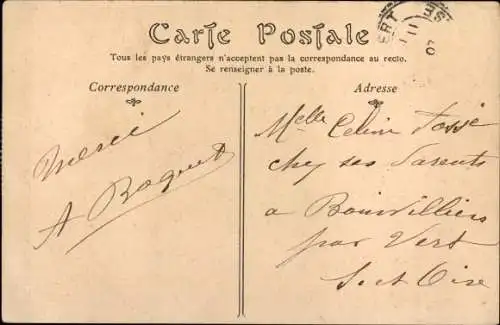 Carte Postale
Tous les pays étrangers n'acceptent pas la correspondance au recto.
Se renseigner à la poste.
Correspondance
Adresse
Merci
A Baquet
Melle Celine Fossé
chez ses Parents
a Boinvilliers
par Vert
S et Oise
ERT
11
07